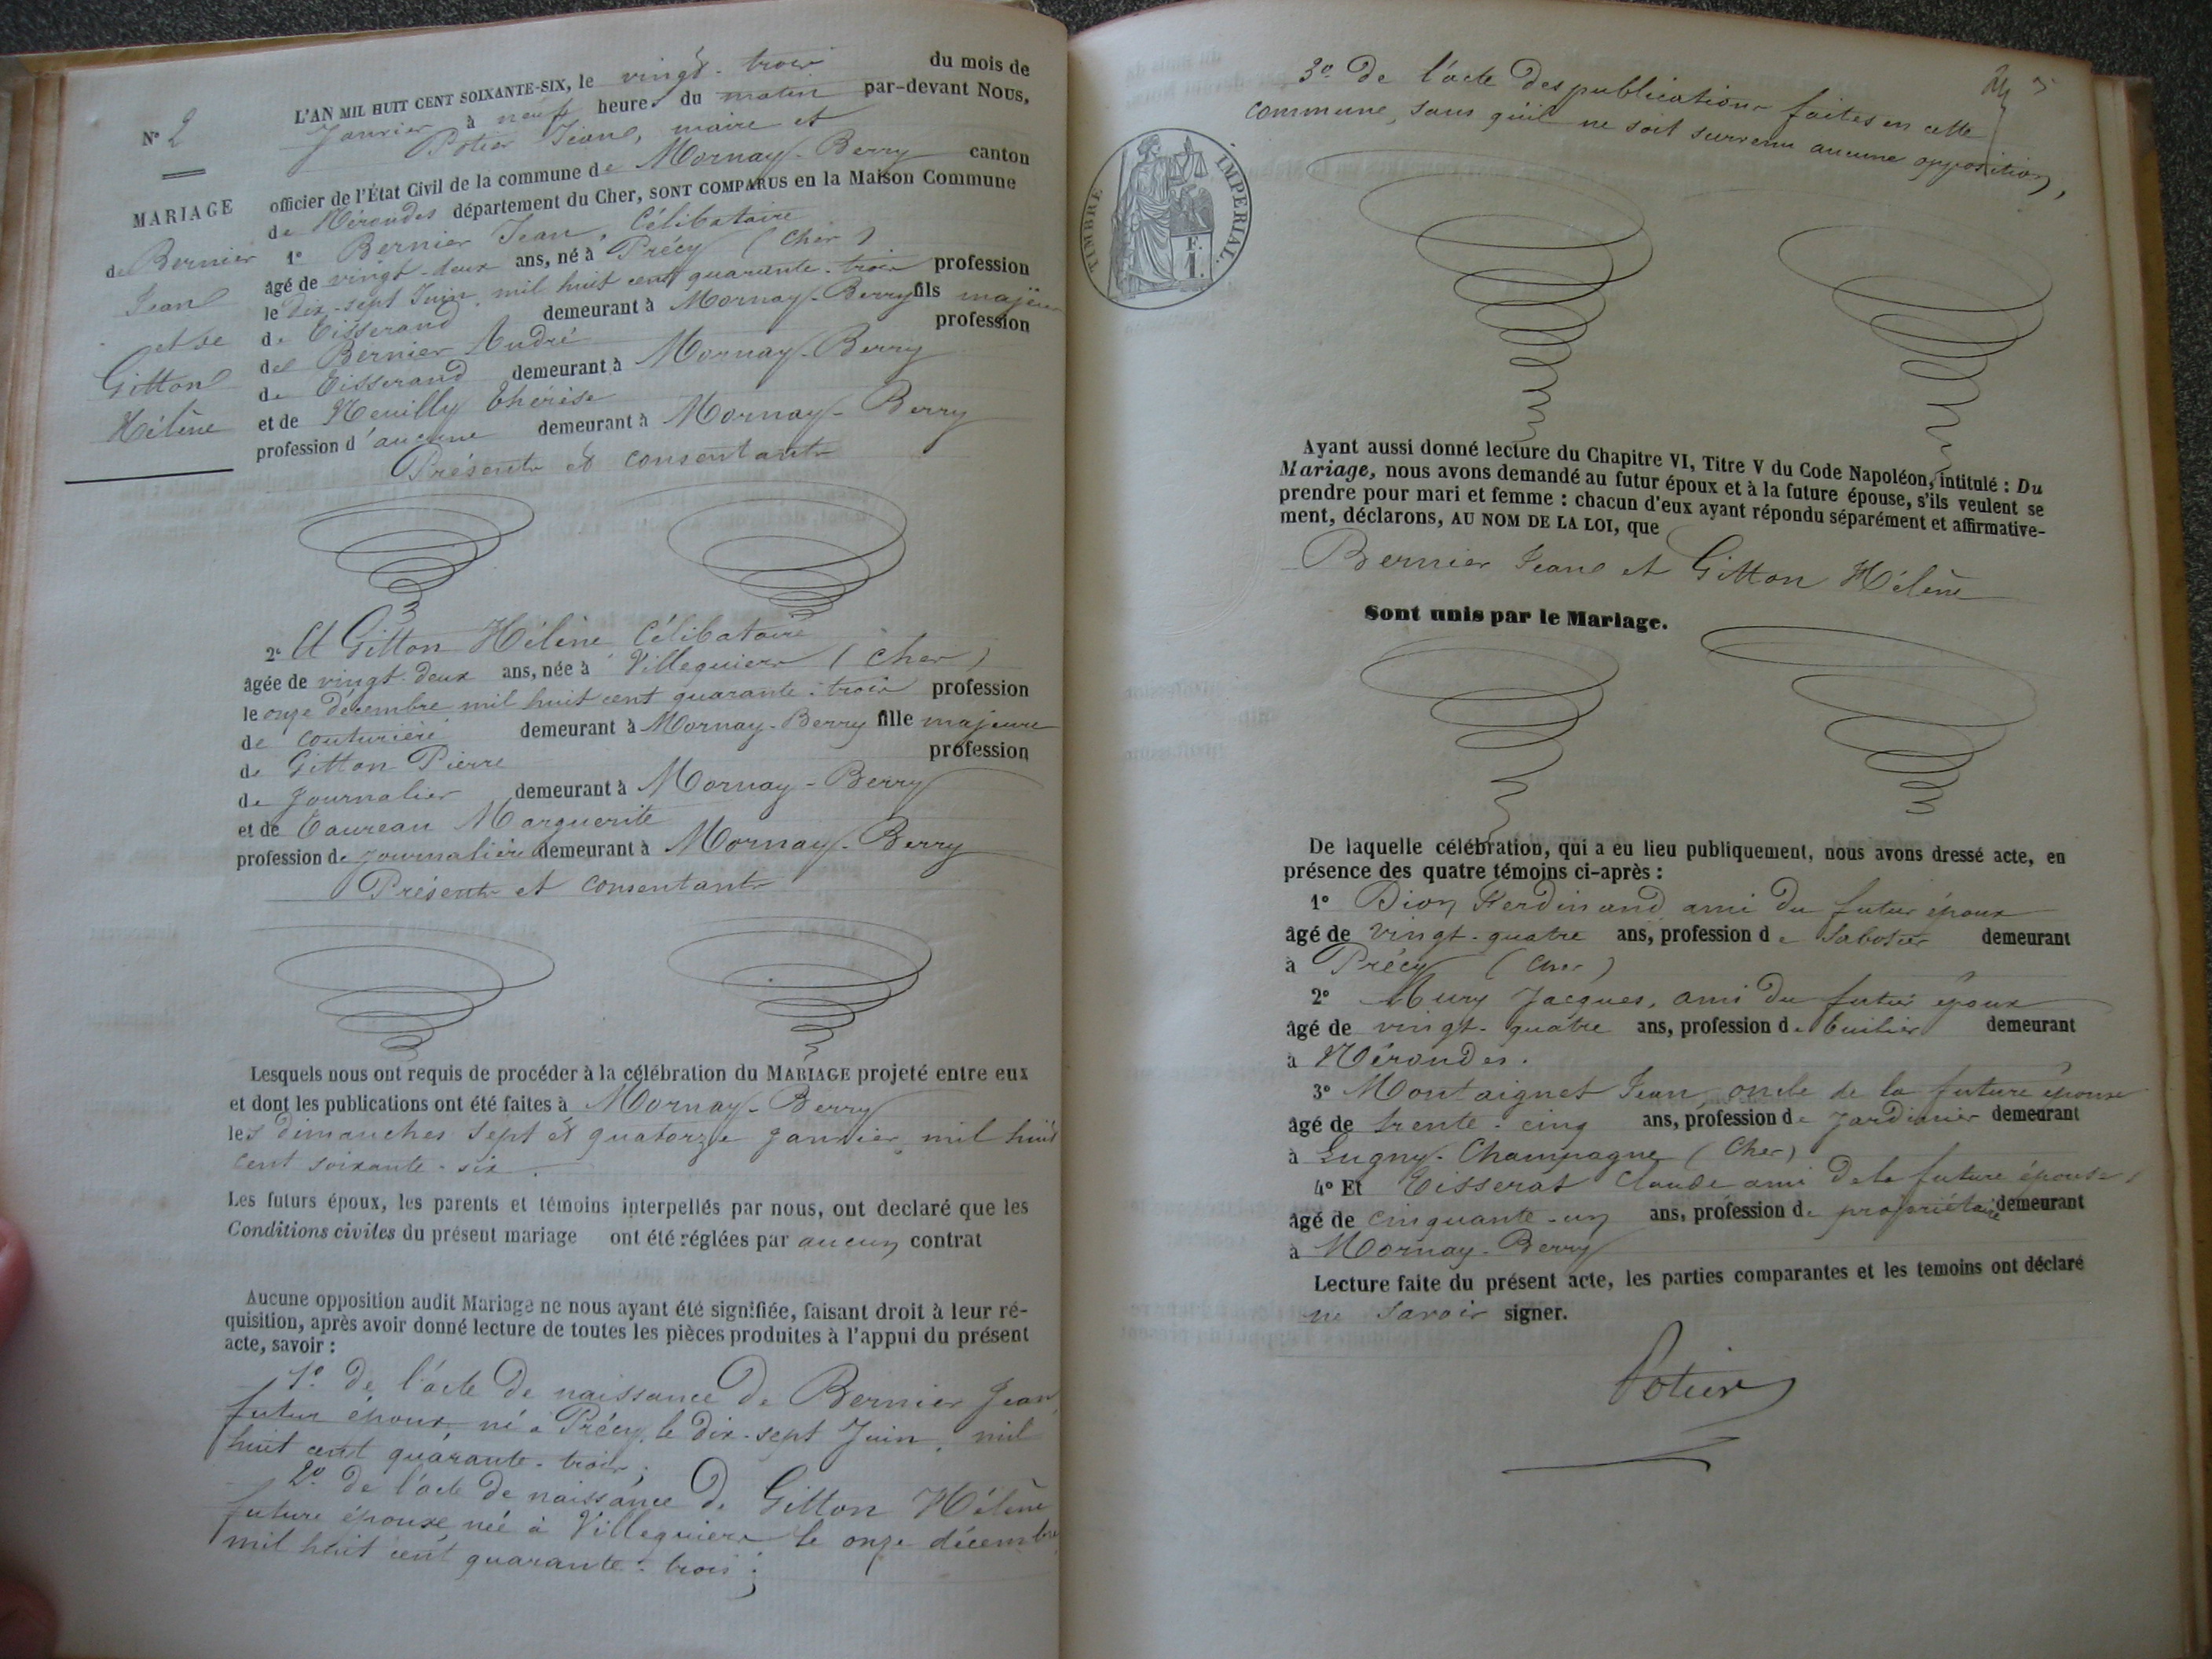 N° 2
MARIAGE
de Bernier
Jean
et de
Gitton
Hélène
L'AN MIL HUIT CENT SOIXANTE-SIX, le vingt-trois du mois de
Janvier à neuf heures du matin par-devant Nous,
Potier Jean, maire et
officier de l'État Civil de la commune de Mornay-Berry canton
de Nérondes département du Cher, SONT COMPARUS en la Maison Commune
1° Bernier Jean, Célibataire
âgé de vingt-deux ans, né à Précy (Cher)
le dix-sept Juin mil huit cent quarante-trois profession
de Tisserand demeurant à Mornay-Berry fils majeur
de Bernier André profession
de Tisserand demeurant à Mornay-Berry
et de Neuilly Thérèse
profession d'aucune demeurant à Mornay-Berry
Présents et consentants
2° Et Gitton Hélène Célibataire
âgée de vingt-deux ans, née à Villequiers (Cher)
le onze décembre mil huit cent quarante-trois profession
de couturière demeurant à Mornay-Berry fille majeure
de Gitton Pierre profession
de Journalier demeurant à Mornay-Berry
et de Taureau Marguerite
profession de journalière demeurant à Mornay-Berry
Présents et consentants
Lesquels nous ont requis de procéder à la célébration du MARIAGE projeté entre eux
et dont les publications ont été faites à Mornay-Berry
les dimanches sept et quatorze janvier mil huit
cent soixante-six.
Les futurs époux, les parents et témoins interpellés par nous, ont declaré que les
Conditions civiles du présent mariage ont été réglées par aucun contrat
Aucune opposition audit Mariage ne nous ayant été signifiée, faisant droit à leur ré-
quisition, après avoir donné lecture de toutes les pièces produites à l'appui du présent
acte, savoir :
1° de l'acte de naissance de Bernier Jean
futur époux, né à Précy, le dix-sept Juin, mil
huit cent quarante-trois;
2° de l'acte de naissance de Gitton Hélène
future épouse née à Villequiers le onze décembre
mil huit cent quarante-trois;
3° De l'acte des publications faites en cette
commune, sans qu'il ne soit survenu aucune opposition,
TIMBRE IMPERIAL.
F.
1.
Ayant aussi donné lecture du Chapitre VI, Titre V du Code Napoléon, intitulé : Du
Mariage, nous avons demandé au futur époux et à la future épouse, s'ils veulent se
prendre pour mari et femme : chacun d'eux ayant répondu séparément et affirmative-
ment, déclarons, AU NOM DE LA LOI, que
Bernier Jean et Gitton Hélène
Sont unis par le Mariage.
De laquelle célébration, qui a eu lieu publiquement, nous avons dressé acte, en
présence des quatre témoins ci-après :
1° Dion Ferdinand ami du futur époux
âgé de vingt-quatre ans, profession de Sabotier demeurant
à Précy (Cher)
2° Mury Jacques, ami du futur époux
âgé de vingt-quatre ans, profession de tuilier demeurant
à Nérondes.
3° Montaignet Jean, oncle de la future épouse
âgé de trente-cinq ans, profession de Jardinier demeurant
à Lugny-Champagne (Cher)
4° Et Tisserat Claude ami de la future épouse,
âgé de cinquante-un ans, profession de propriétaire demeurant
à Mornay-Berry
Lecture faite du présent acte, les parties comparantes et les temoins ont déclaré
ne savoir signer.
Potier